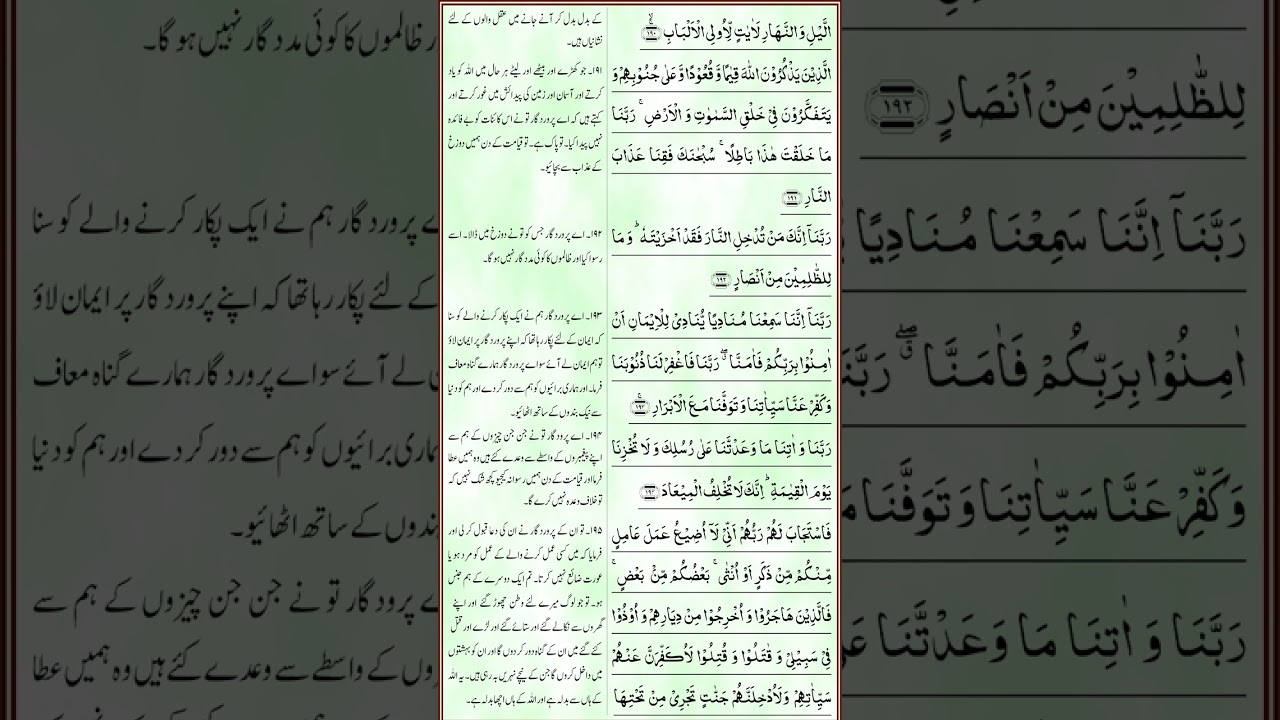 الَّيْلِ وَالنَّهَارِ لَاٰيٰتٍ لِّاُولِى الْاَلْبَابِ ۚۙ ﴿۱۹۰﴾
الَّذِيْنَ يَذْكُرُوْنَ اللّٰهَ قِيٰمًا وَّقُعُوْدًا وَّعَلٰى جُنُوْبِهِمْ وَ
يَتَفَكَّرُوْنَ فِىْ خَلْقِ السَّمٰوٰتِ وَ الْاَرْضِ ۚ رَبَّنَا
مَا خَلَقْتَ هٰذَا بَاطِلًا ۚ سُبْحٰنَكَ فَقِنَا عَذَابَ
النَّارِ ﴿۱۹۱﴾
رَبَّنَاۤ اِنَّكَ مَنْ تُدْخِلِ النَّارَ فَقَدْ اَخْزَيْتَهٗ ؕ وَ مَا
لِلظّٰلِمِيْنَ مِنْ اَنْصَارٍ ﴿۱۹۲﴾
رَبَّنَاۤ اِنَّنَا سَمِعْنَا مُنَادِيًا يُّنَادِىْ لِلْاِيْمَانِ اَنْ
اٰمِنُوْا بِرَبِّكُمْ فَاٰمَنَّا ۖۗ رَبَّنَا فَاغْفِرْ لَنَا ذُنُوْبَنَا
وَ كَفِّرْ عَنَّا سَيِّاٰتِنَا وَ تَوَفَّنَا مَعَ الْاَبْرَارِ ۚ ﴿۱۹۳﴾
رَبَّنَا وَ اٰتِنَا مَا وَعَدْتَّنَا عَلٰى رُسُلِكَ وَ لَا تُخْزِنَا
يَوْمَ الْقِيٰمَةِ ؕ اِنَّكَ لَا تُخْلِفُ الْمِيْعَادَ ﴿۱۹۴﴾
فَاسْتَجَابَ لَهُمْ رَبُّهُمْ اَنِّىْ لَاۤ اُضِيْعُ عَمَلَ عَامِلٍ
مِّنْكُمْ مِّنْ ذَكَرٍ اَوْ اُنْثٰى ۚ بَعْضُكُمْ مِّنْۢ بَعْضٍ ۚ
فَالَّذِيْنَ هَاجَرُوْا وَ اُخْرِجُوْا مِنْ دِيَارِهِمْ وَ اُوْذُوْا
فِىْ سَبِيْلِىْ وَ قٰتَلُوْا وَ قُتِلُوْا لَاُكَفِّرَنَّ عَنْهُمْ
سَيِّاٰتِهِمْ وَلَاُدْخِلَنَّهُمْ جَنّٰتٍ تَجْرِىْ مِنْ تَحْتِهَا
کے بدل بدل کر آنے جانے میں عقل والوں کے لئے
نشانیاں ہیں۔
۱۹۱۔ جو کھڑے اور بیٹھے اور لیٹے ہر حال میں اللہ کو یاد
کرتے اور آسمان اور زمین کی پیدائش میں غور کرتے اور
کہتے ہیں کہ اے پروردگار تو نے اس کائنات کو بے فائدہ
نہیں پیدا کیا۔ تو پاک ہے۔ تو قیامت کے دن ہمیں دوزخ
کے عذاب سے بچائیو۔
۱۹۲۔ اے پروردگار جس کو تو نے دوزخ میں ڈالا۔ اسے
رسوا کیا اور ظالموں کا کوئی مددگار نہیں ہو گا۔
۱۹۳۔ اے پروردگار ہم نے ایک پکار کرنے والے کو سنا
کہ ایمان کے لئے پکار رہا تھا کہ اپنے پروردگار پر ایمان لاؤ
تو ہم ایمان لے آئے سو اے پروردگار ہمارے گناہ معاف
فرما۔ اور ہماری برائیوں کو ہم سے دور کر دے اور ہم کو دنیا
سے نیک بندوں کے ساتھ اٹھائیو۔
۱۹۴۔ اے پرودگار تو نے جن جن چیزوں کے ہم سے
اپنے پیغمبروں کے واسطے سے وعدے کئے ہیں وہ ہمیں عطا
فرما اور قیامت کے دن ہمیں رسوا نہ کیجیو کچھ شک نہیں کہ
تو خلاف وعدہ نہیں کرے گا۔
۱۹۵۔ تو ان کے پروردگار نے ان کی دعا قبول کر لی اور
فرمایا کہ میں کسی عمل کرنے والے کے عمل کو مرد ہو یا
عورت ضائع نہیں کرتا۔ تم ایک دوسرے کے ہم جنس
ہو۔ تو جو لوگ میرے لئے وطن چھوڑ گئے اور اپنے
گھروں سے نکالے گئے اور ستائے گئے اور لڑے اور قتل
کئے گئے میں ان کے گناہ دور کر دوں گا اور ان کو بہشتوں
میں داخل کروں گا جن کے نیچے نہریں بہہ رہی ہیں۔ یہ اللہ
کے ہاں سے بدلہ ہے اور اللہ کے ہاں اچھا بدلہ ہے۔
لِلظّٰلِمِيْنَ مِنْ اَنْصَارٍ ﴿۱۹۲﴾
رَبَّنَاۤ اِنَّنَا سَمِعْنَا مُنَادِيًا
اٰمِنُوْا بِرَبِّكُمْ فَاٰمَنَّا ۖۗ رَبَّنَا
وَ كَفِّرْ عَنَّا سَيِّاٰتِنَا وَ تَوَفَّنَا
رَبَّنَا وَ اٰتِنَا مَا وَعَدْتَّنَا
ظالموں کا کوئی مددگار نہیں ہو گا۔
اے پروردگار ہم نے ایک پکار کرنے والے کو سنا
کے لئے پکار رہا تھا کہ اپنے پروردگار پر ایمان لاؤ
لے آئے سو اے پروردگار ہمارے گناہ معاف
ہماری برائیوں کو ہم سے دور کر دے اور ہم کو دنیا
بندوں کے ساتھ اٹھائیو۔
اے پرودگار تو نے جن جن چیزوں کے ہم سے
کے واسطے سے وعدے کئے ہیں وہ ہمیں عطا